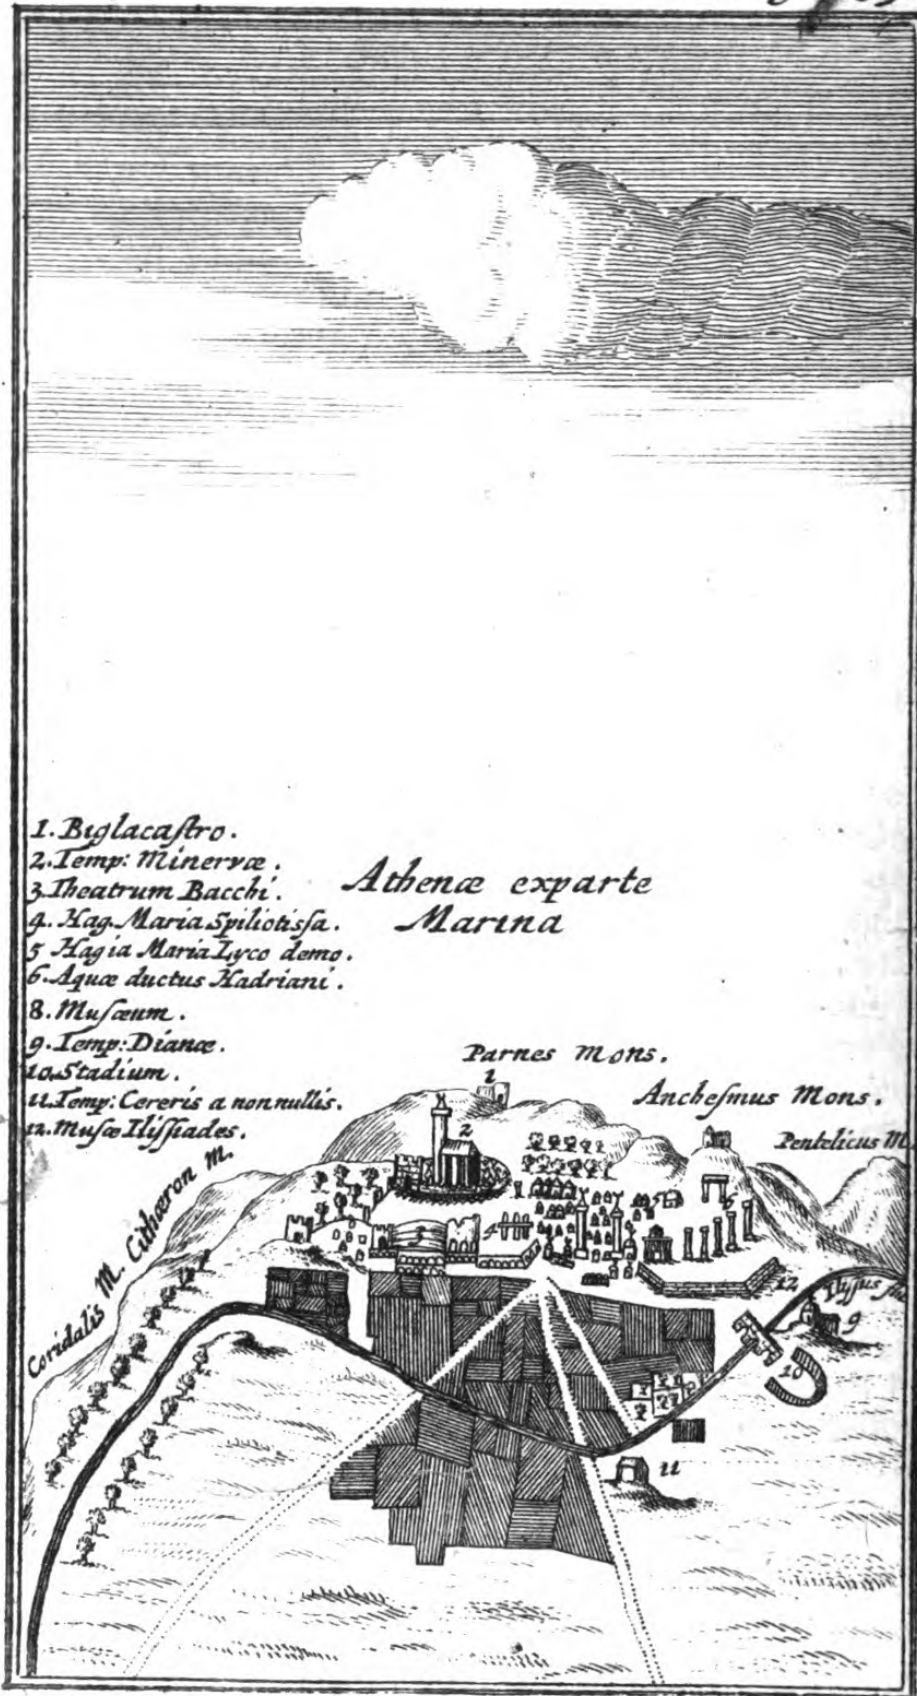 1. Biglacaſtro.
2. Temp: Minervæ.
3 Theatrum Bacchi.
4. Hag. Maria Spiliotiſſa.
5 Hagia Maria Lyco demo.
6. Aquæ ductus Hadriani.
8. Muſæum.
9. Temp: Dianæ.
10. Stadium.
11. Temp: Cereris a nonnullis.
12. Muſæ Iliſſiades.
Athenæ exparte
Marina
Parnes Mons.
Ancheſmus Mons.
Pentelicus M
Coridalis M. Cithæron M.
1
2
3
4
5
6
12
Ilyſſus
9
10
11